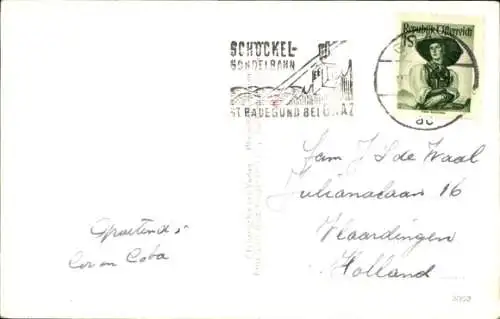 SCHÖCKEL-
GONDELBAHN
ST RADEGUND BEI GRAZ
Republik Österreich
Fam J L de Waal
Julianalaan 16
Vlaardingen
Holland
Groetend
Cor en Coba